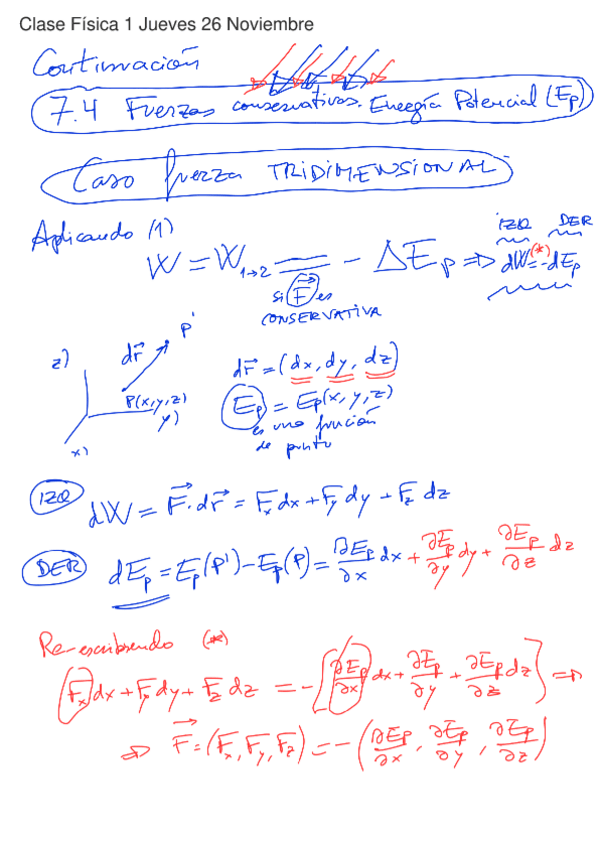 Clase Física 1 Jueves 26 Noviembre
Continuación
7.4 Fuerzas conservativas. Energía Potencial (Ep)
Caso fuerza TRIDIMENSIONAL
Aplicando (1)
IZQ DER
W = W₁→₂ = - ΔEp => dW = -dEp (*)
si F⃗ es
CONSERVATIVA
z) dr⃗ P'
P(x,y,z)
y)
x)
dr⃗ = (dx, dy, dz)
Ep = Ep(x, y, z)
es una función
de punto
IZQ dW = F⃗·dr⃗ = Fx dx + Fy dy + Fz dz
DER dEp = Ep(P') - Ep(P) = ∂Ep/∂x dx + ∂Ep/∂y dy + ∂Ep/∂z dz
Re-escribiendo (*)
Fx dx + Fy dy + Fz dz = -[∂Ep/∂x dx + ∂Ep/∂y + ∂Ep/∂z dz] =>
=> F⃗ = (Fx, Fy, Fz) = -(∂Ep/∂x, ∂Ep/∂y, ∂Ep/∂z)